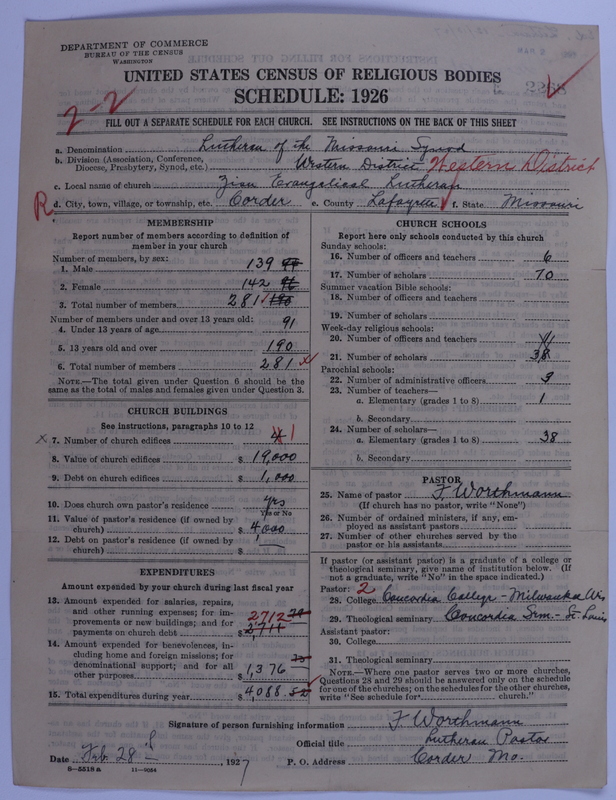 DEPARTMENT OF COMMERCE
BUREAU OF THE CENSUS
WASHINGTON
UNITED STATES CENSUS OF RELIGIOUS BODIES
SCHEDULE: 1926
2-2
FILL OUT A SEPARATE SCHEDULE FOR EACH CHURCH. SEE INSTRUCTIONS ON THE BACK OF THIS SHEET
a. Denomination Lutheran of the Missouri Synod
b. Division (Association, Conference, Diocese, Presbytery, Synod, etc.) Western District Western District
c. Local name of church Zion Evangelical Lutheran
R d. City, town, village, or township, etc. Corder e. County Lafayette f. State Missouri
MEMBERSHIP
Report number of members according to definition of
member in your church
Number of members, by sex:
1. Male 139
2. Female 142
3. Total number of members 281
Number of members under and over 13 years old:
4. Under 13 years of age 91
5. 13 years old and over 190
6. Total number of members 281
NOTE.—The total given under Question 6 should be
same as the total of males and females given under Question 3.
CHURCH BUILDINGS
See instructions, paragraphs 10 to 12
x 7. Number of church edifices 1
8. Value of church edifices $ 19,000
9. Debt on church edifices $ 1,000
10. Does church own pastor's residence yrs
Yes or No
11. Value of pastor's residence (if owned by
church) $ 4,000
12. Debt on pastor's residence (if owned by
church) $ —
EXPENDITURES
Amount expended by your church during last fiscal year
13. Amount expended for salaries, repairs,
and other running expenses; for im-
provements or new buildings; and for
payments on church debt $ 2711 2712
14. Amount expended for benevolences, in-
cluding home and foreign missions; for
denominational support; and for all
other purposes $ 1,376
15. Total expenditures during year $ 4,088 52
CHURCH SCHOOLS
Report here only schools conducted by this church
Sunday schools:
16. Number of officers and teachers 6
17. Number of scholars 70
Summer vacation Bible schools:
18. Number of officers and teachers
19. Number of scholars
Week-day religious schools:
20. Number of officers and teachers
21. Number of scholars 38
Parochial schools:
22. Number of administrative officers 3
23. Number of teachers—
a. Elementary (grades 1 to 8) 1
b. Secondary
24. Number of scholars—
a. Elementary (grades 1 to 8) 38
b. Secondary
PASTOR
25. Name of pastor F. Worthmann
(If church has no pastor, write "None")
26. Number of ordained ministers, if any, em-
ployed as assistant pastors
27. Number of other churches served by the
pastor or his assistants
If pastor (or assistant pastor) is a graduate of a college or
theological seminary, give name of institution below. (If
not a graduate, write "No" in the space indicated.)
Pastor: 2
28. College Concordia College - Milwaukee Wis
29. Theological seminary Concordia Sem. - St. Louis
Assistant pastor:
30. College
31. Theological seminary
NOTE.—Where one pastor serves two or more churches,
Questions 28 and 29 should be answered only on the schedule
for one of the churches; on the schedules for the other churches,
write "See schedule for church."
Signature of person furnishing information F. Worthmann
Official title Lutheran Pastor
Date Feb. 28, 1927 P. O. Address Corder Mo.
8—5518a 11—9054